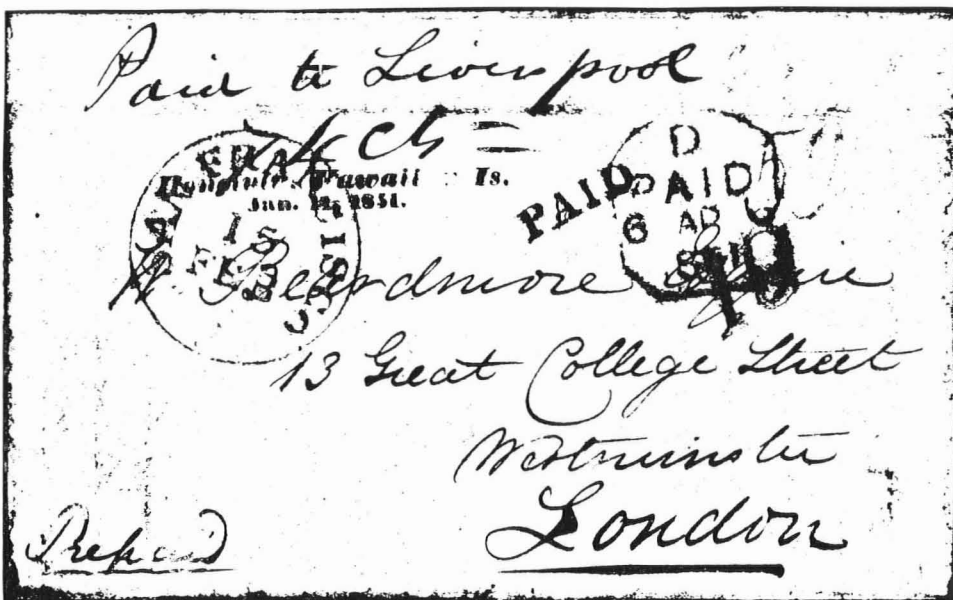 Paid to Liverpool
cts =
Honolulu, Hawaii Is.
Jan. 1851.
SAN FRANCISCO
15
FEB
PAID
D
PAID
6 AP
Beardmore Esquire
13 Great College Street
Westminster
London
Prepaid